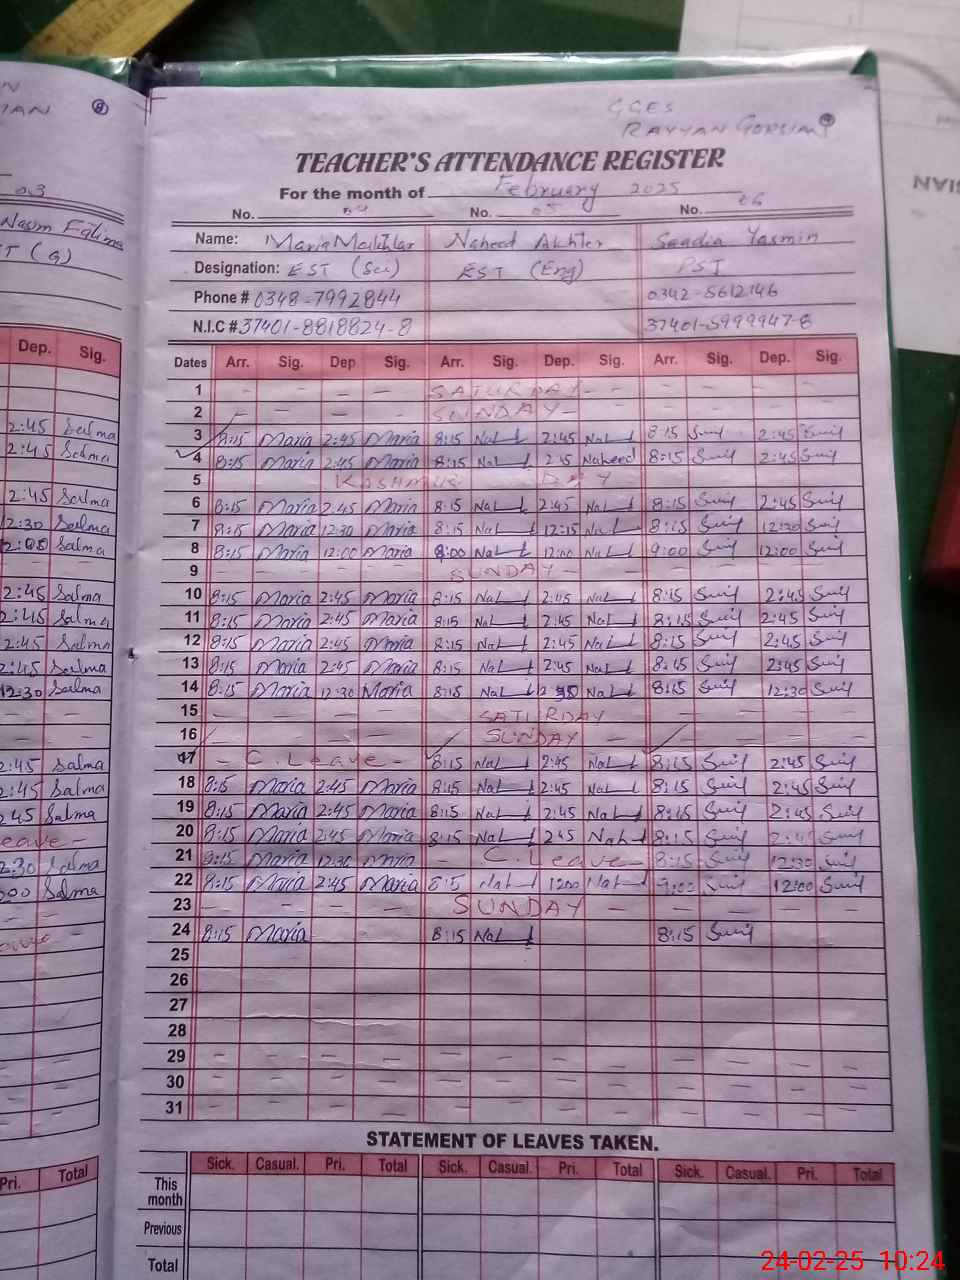 GGES
RAYYAN
TEACHER'S ATTENDANCE REGISTER
For the month of February 2025
No. 04 No. 05 No. 06
Name: Maria Naheed Akhter Saadia Yasmin
Designation: EST (Sci) EST (Eng) PST
Phone # 0348-7992844 0342-5612146
N.I.C # 37401-8818824-8 37401-5999947-8
Dates Arr. Sig. Dep Sig. Arr. Sig. Dep. Sig. Arr. Sig. Dep. Sig.
1 - - - - SATURDAY - - - - -
2 - - - - SUNDAY - - - - -
3 8:15 Maria 2:45 Maria 8:15 2:45 8:15 2:45
4 8:15 Maria 2:45 Maria 8:15 2:45 Naheed 8:15 2:45
5 KASHMIR DAY
6 8:15 Maria 2:45 Maria 8:15 2:45 8:15 2:45
7 8:15 Maria 12:30 Maria 8:15 12:15 8:15 12:30
8 8:15 Maria 12:00 Maria 8:00 12:00 9:00 12:00
9 - - - - SUNDAY - - - - -
10 8:15 Maria 2:45 Maria 8:15 2:45 8:15 2:45
11 8:15 Maria 2:45 Maria 8:15 2:45 8:15 2:45
12 8:15 Maria 2:45 Maria 8:15 2:45 8:15 2:45
13 8:15 Maria 2:45 Maria 8:15 2:45 8:45 2:45
14 8:15 Maria 12:30 Maria 8:15 8:15 12:30
15 - - - - SATURDAY - - - -
16 - - - - SUNDAY - - - -
17 - C. Leave - 8:15 2:45 8:15 2:45
18 8:15 Maria 2:45 Maria 8:15 2:45 8:15 2:45
19 8:15 Maria 2:45 Maria 8:15 2:45 8:15 2:45
20 8:15 Maria 2:45 Maria 8:15 245 8:15 2:45
21 8:15 Maria 12:30 Maria C. Leave - 8:15 12:30
22 8:15 Maria 2:45 Maria 8:15 1200 9:00 12:00
23 - - - - SUNDAY - - - - -
24 8:15 Maria 8:15 8:15
25
26
27
28
29 - - - - - - - - - - - -
30 - - - - - - - - - - - -
31 - - - - - - - - - - - -
STATEMENT OF LEAVES TAKEN.
Sick. Casual. Pri. Total Sick. Casual. Pri. Total Sick. Casual. Pri. Total
This month
Previous
Total
03
Nasim Fatima
ST (G)
Dep. Sig.
2:45 Salma
2:45 Salma
2:45 Salma
12:30 Salma
Salma
2:45 Salma
2:45 Salma
2:45 Salma
2:45 Salma
12:30 Salma
2:45 Salma
2:45 Salma
245 Salma
eave -
2:30 Salma
00 Salma
Pri. Total
24-02-25 10:24